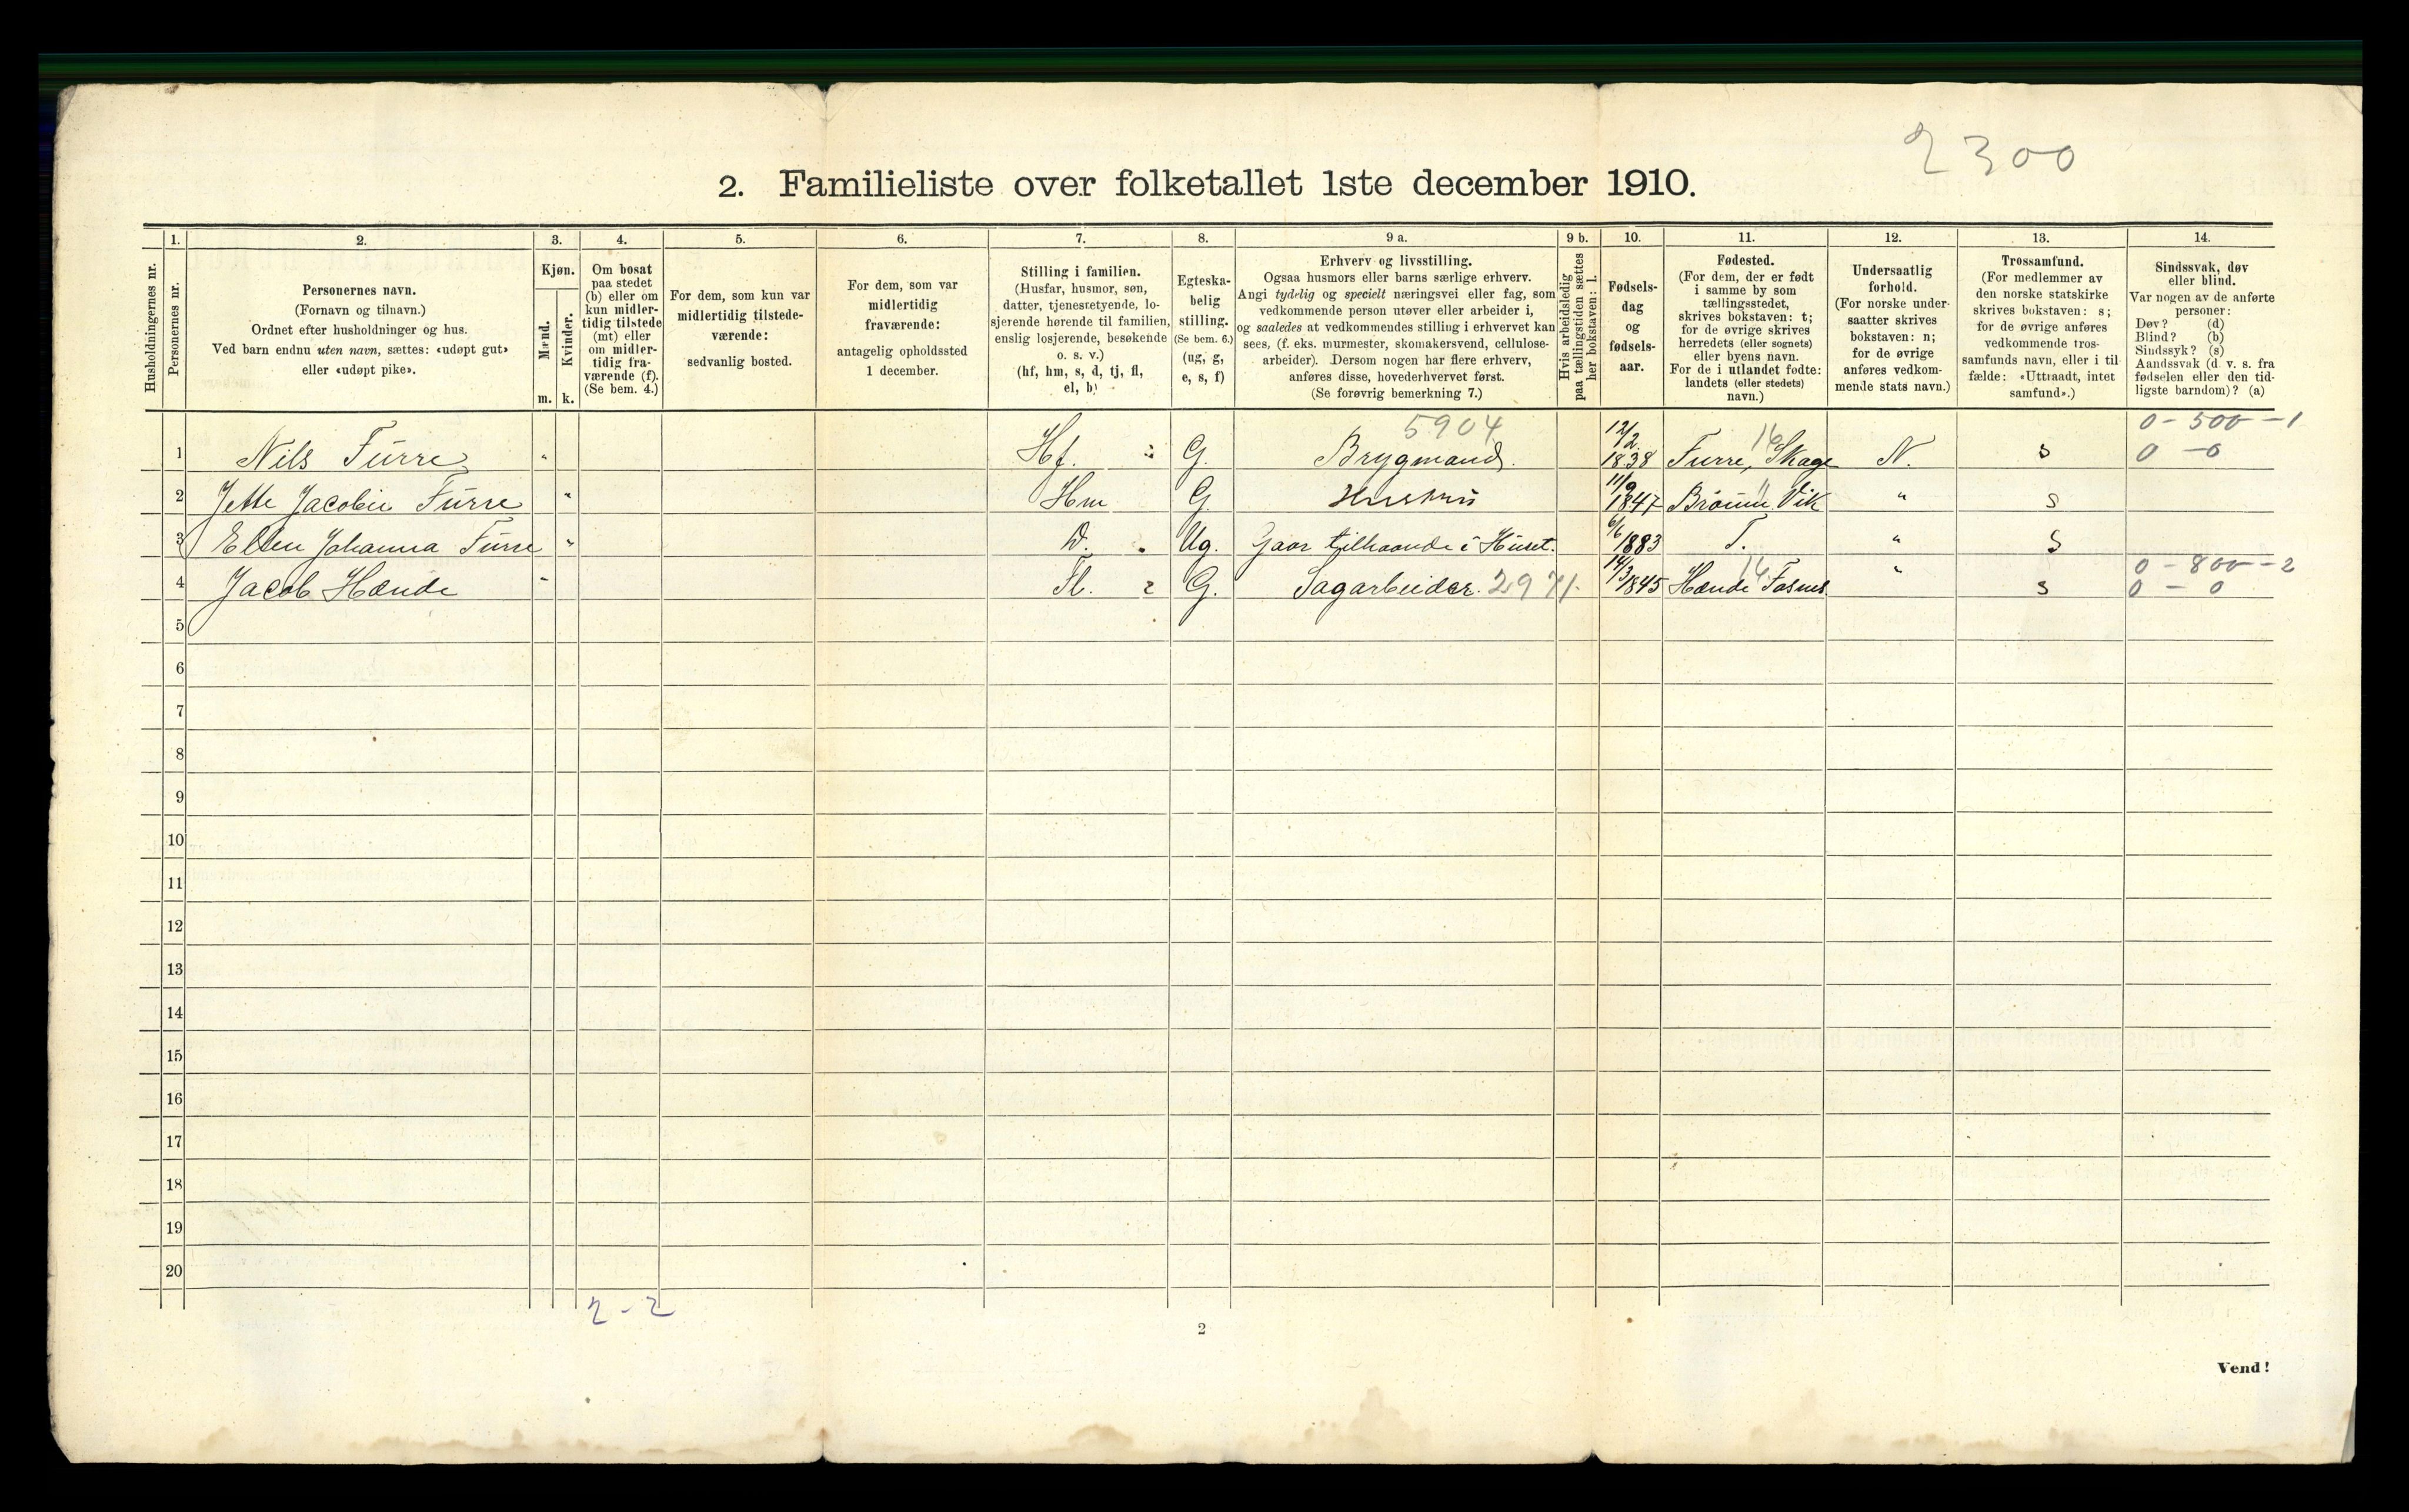 2300
2. Familieliste over folketallet 1ste december 1910.
1. 2. 3. 4. 5. 6. 7. 8. 9 a. 9 b. 10. 11. 12. 13. 14.
Husholdningernes nr.
Personernes nr.
Personernes navn.
(Fornavn og tilnavn.)
Ordnet efter husholdninger og hus.
Ved barn endnu uten navn, sættes: «udøpt gut»
eller «udøpt pike».
Kjøn.
Mænd.
Kvinder.
m. k.
Om bosat
paa stedet
(b) eller om
kun midler-
tidig tilstede
(mt) eller
om midler-
tidig fra-
værende (f).
(Se bem. 4.)
For dem, som kun var
midlertidig tilstede-
værende:
sedvanlig bosted.
For dem, som var
midlertidig
fraværende:
antagelig opholdssted
1 december.
Stilling i familien.
(Husfar, husmor, søn,
datter, tjenestetyende, lo-
sjerende hørende til familien,
enslig losjerende, besøkende
o. s. v.)
(hf, hm, s, d, tj, fl,
el, b)
Egteska-
belig
stilling.
(Se bem. 6.)
(ug, g,
e, s, f)
Erhverv og livsstilling.
Ogsaa husmors eller barns særlige erhverv.
Angi tydelig og specielt næringsvei eller fag, som
vedkommende person utøver eller arbeider i,
og saaledes at vedkommendes stilling i erhvervet kan
sees, (f. eks. murmester, skomakersvend, cellulose-
arbeider). Dersom nogen har flere erhverv,
anføres disse, hovederhvervet først.
(Se forøvrig bemerkning 7.)
Hvis arbeidsledig
paa tællingstiden sættes
her bokstaven: l.
Fødsels-
dag
og
fødsels-
aar.
Fødested.
(For dem, der er født
i samme by som
tællingsstedet,
skrives bokstaven: t;
for de øvrige skrives
herredets (eller sognets)
eller byens navn.
For de i utlandet fødte:
landets (eller stedets)
navn.)
Undersaatlig
forhold.
(For norske under-
saatter skrives
bokstaven: n;
for de øvrige
anføres vedkom-
mende stats navn.)
Trossamfund.
(For medlemmer av
den norske statskirke
skrives bokstaven: s;
for de øvrige anføres
vedkommende tros-
samfunds navn, eller i til
fælde: «Uttraadt, intet
samfund».)
Sindssvak, døv
eller blind.
Var nogen av de anførte
personer:
Døv? (d)
Blind? (b)
Sindssyk? (s)
Aandssvak (d. v. s. fra
fødselen eller den tid-
ligste barndom)? (a)
5904 12/2 16 0 - 500 - 1
1 Nils Furre " Hf. G. Brygmand. 1838 Furre, Skage N. s 0 - 0
2 Jette Jacobie Furre " Hm G. Hushus 11/9 1847 Brönne Vik " " s
3 Ellen Johanna Furre " D. Ug. Gaar tilhaande i Huset. 6/6 1883 T. " s
14/3 16 " 0 - 800 - 2
4 Jacob Hænde " Fl. 2 G. Sagarbeider. 2971. 1845 Hænde Fosnes s 0 - 0
5
6
7
8
9
10
11
12
13
14
15
16
17
18
19
20
2 - 2
2
Vend!